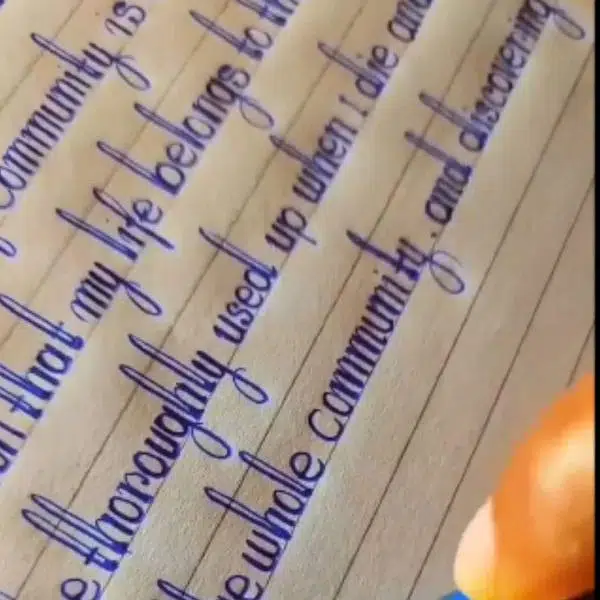 community is
that my life belongs to
thoroughly used up when i die
whole community. and discovering